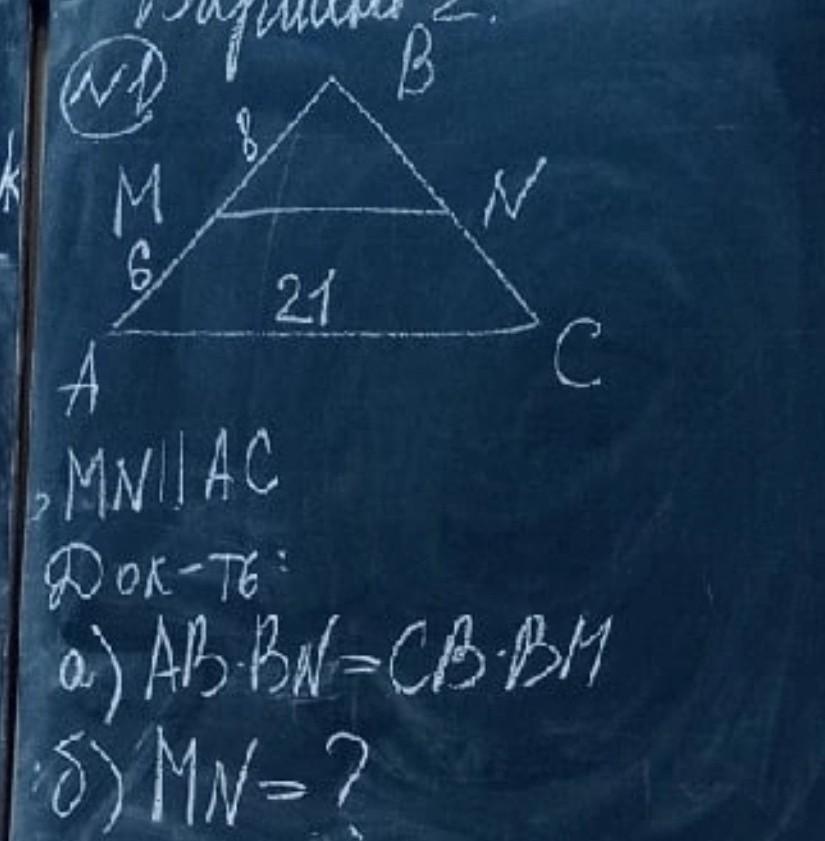 Вариант 2.
N1
B
8
M N
6
21
A C
MN||AC
Док-ть:
а) AB·BN=CB·BM
б) MN=?